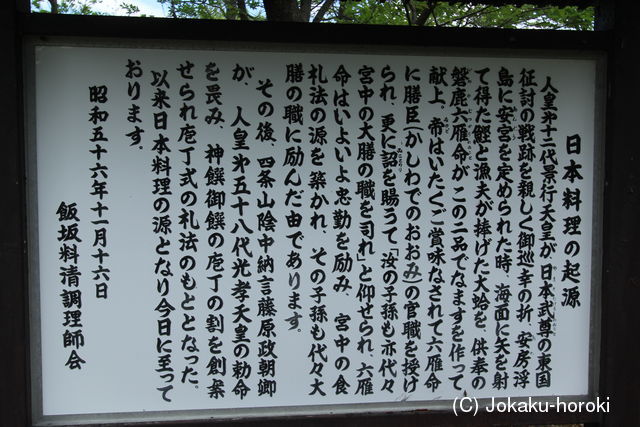 日本料理の起源
人皇第十二代景行天皇が、日本武尊の東国
征討の戦跡を親しく御巡幸の折、安房浮
島に安宮を定められた時、海面に矢を射
て得た鰹と漁夫が捧げた大蛤を、供奉の
磐鹿六雁命がこの二品でなますを作って
献上、帝はいたくご賞味なされて六雁命
に膳臣(かしわでのおおみ)の官職を授け
られ、更に詔を賜うて「汝の子孫も亦代々
宮中の大膳の職を司れ」と仰せられ、六雁
命はいよいよ忠勤を励み、宮中の食
礼法の源を築かれ、その子孫も代々大
膳の職に励んだ由であります。
その後、四条山陰中納言藤原政朝卿
が、人皇第五十八代光孝天皇の勅命
を畏み、神饌御饌の庖丁の割を創案
せられ庖丁式の礼法のもととなった。
以来日本料理の源となり今日に至って
おります。
昭和五十六年十一月十六日
飯坂料清調理師会
(C) Jokaku-horoki